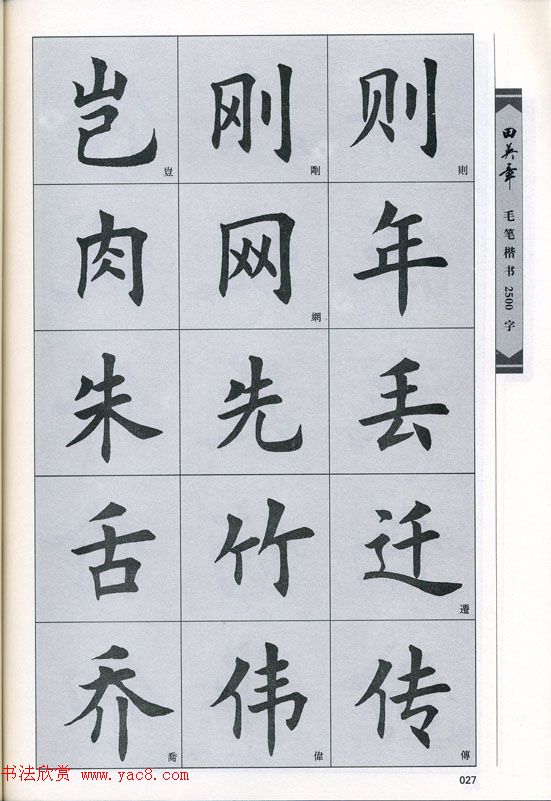 岂 豈 刚 剛 则 則
肉 网 網 年
朱 先 丢
舌 竹 迁 遷
乔 喬 伟 偉 传 傳
田英章
毛笔楷书2500字
027
书法欣赏 www.yac8.com